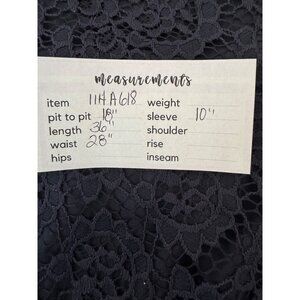 measurements
item 11HA618 weight
pit to pit 18" sleeve 10"
length 36" shoulder
waist 28" rise
hips inseam